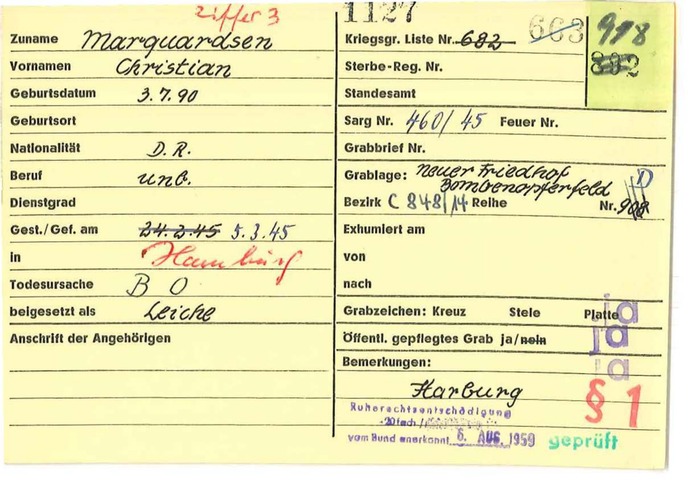 Ziffer 3
1127
Zuname Marquardsen
Vornamen Christian
Geburtsdatum 3.7.90
Geburtsort
Nationalität D.R.
Beruf unb.
Dienstgrad
Gest./Gef. am 24.2.45 5.3.45
in Hamburg
Todesursache B O
beigesetzt als Leiche
Anschrift der Angehörigen
Kriegsgr. Liste Nr. 682 663 918
892
Sterbe-Reg. Nr.
Standesamt
Sarg Nr. 460/45 Feuer Nr.
Grabbrief Nr.
Grablage: neuer Friedhof
Bombenopferfeld D
Bezirk C 848/14 Reihe Nr. 908
Exhumiert am
von
nach
Grabzeichen: Kreuz Stele Platte ja
Öffentl. gepflegtes Grab ja/nein ja
Bemerkungen: ja
Harburg
§ 1
Ruherechtsentschädigung
-20fach
vom Bund anerkannt 6. AUG. 1959
geprüft